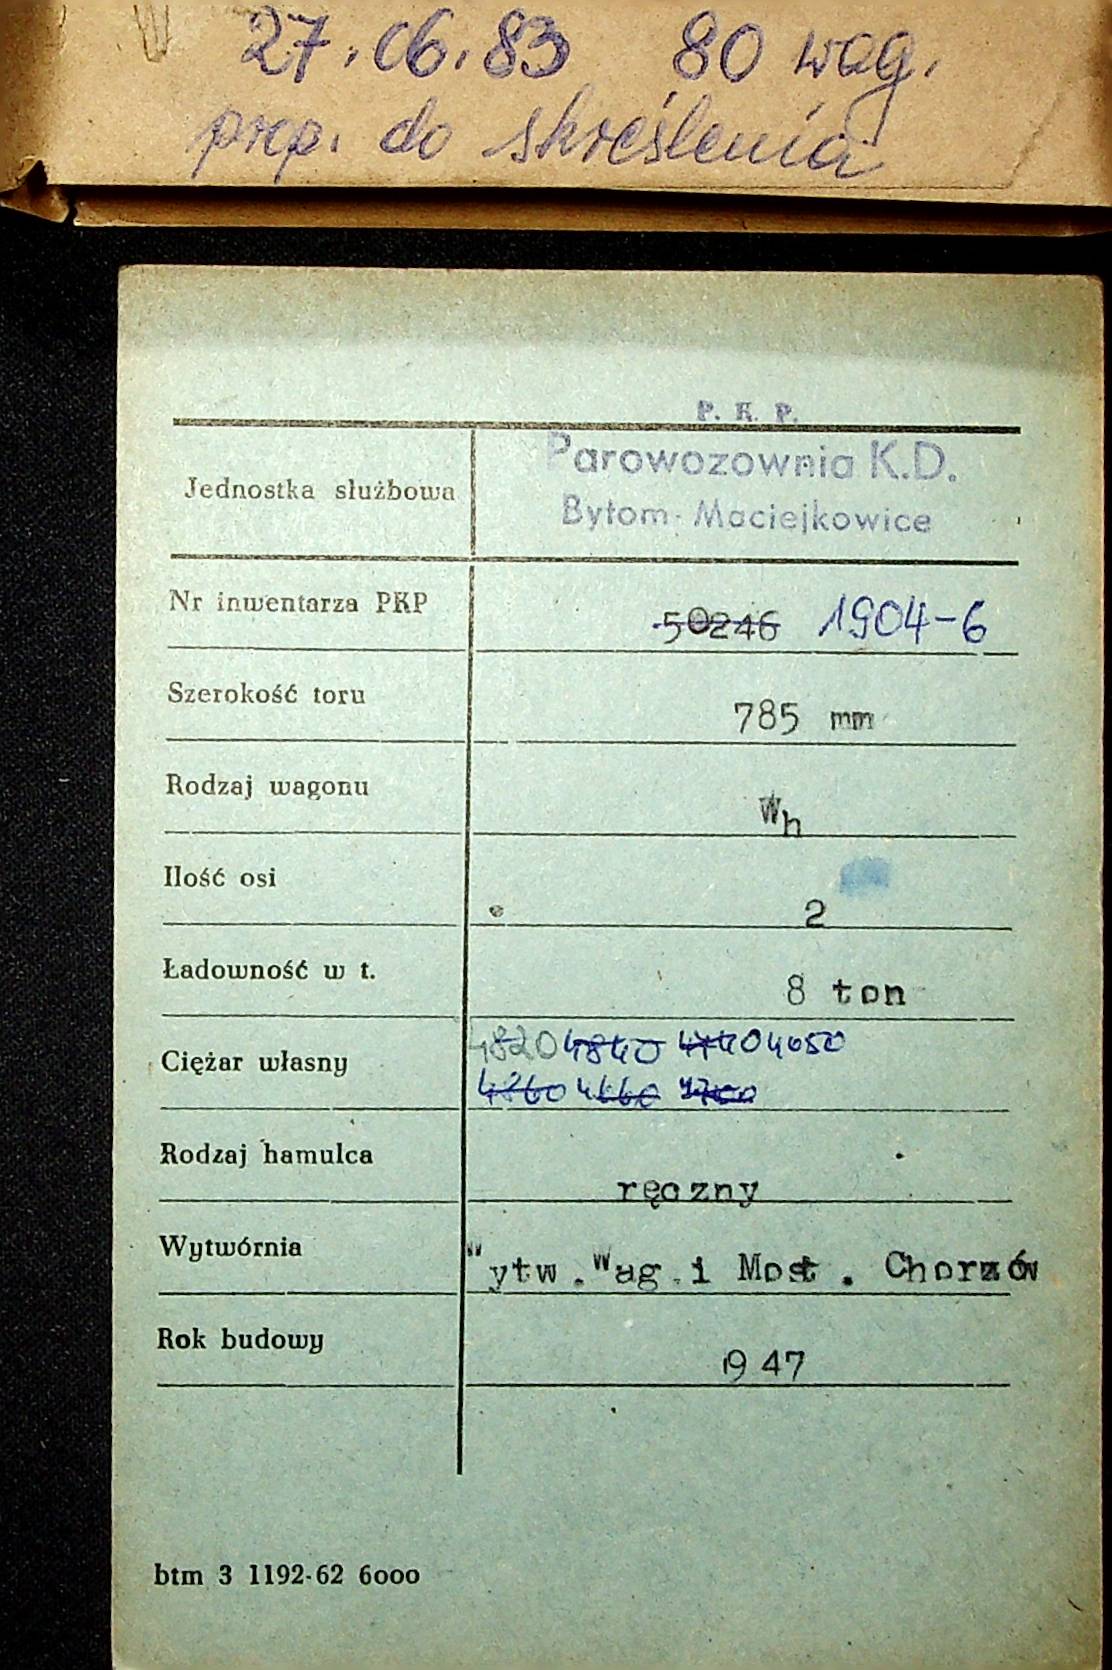 27.06.83 80 wag.
prop. do skreślenia
P. K. P.
Jednostka służbowa Parowozownia K.D.
Bytom-Maciejkowice
Nr inwentarza PKP 50246 1904-6
Szerokość toru 785 mm
Rodzaj wagonu Wh
Ilość osi 2
Ładowność w t. 8 ton
Ciężar własny 4820 4840 4650
4660
Rodzaj hamulca ręczny
Wytwórnia Wytw. Wag. i Most. Chorzów
Rok budowy 1947
btm 3 1192-62 6000